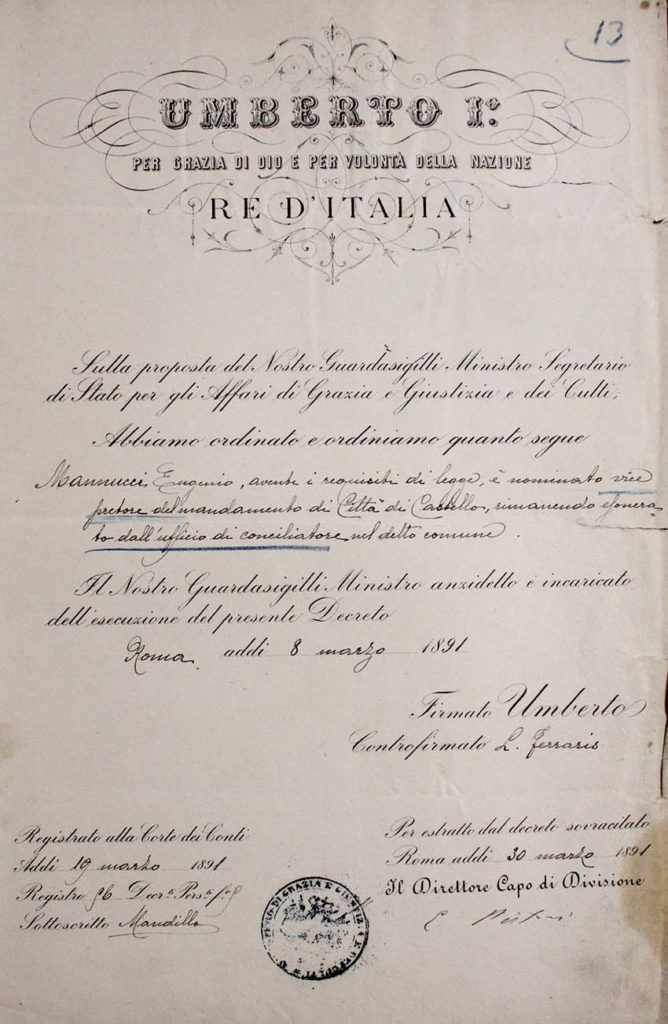 13
UMBERTO I.º
PER GRAZIA DI DIO E PER VOLONTÀ DELLA NAZIONE
RE D'ITALIA
Sulla proposta del Nostro Guardasigilli Ministro Segretario
di Stato per gli Affari di Grazia e Giustizia e dei Culti;
Abbiamo ordinato e ordiniamo quanto segue
Mannucci Eugenio, avente i requisiti di legge, è nominato vice
pretore del mandamento di Città di Castello, rimanendo esonera
to dall'ufficio di conciliatore nel detto comune.
Il Nostro Guardasigilli Ministro anzidetto è incaricato
dell'esecuzione del presente Decreto
Roma addi 8 marzo 1891
Firmato Umberto
Controfirmato L. Ferraris
Registrato alla Corte dei Conti
Addi 19 marzo 1891
Registro 96 Decr. Pers.
Sottoscritto Mandillo
Per estratto dal decreto sovracitato
Roma addi 30 marzo 1891
Il Direttore Capo di Divisione
DI GRAZIA E GIUSTIZIA E D